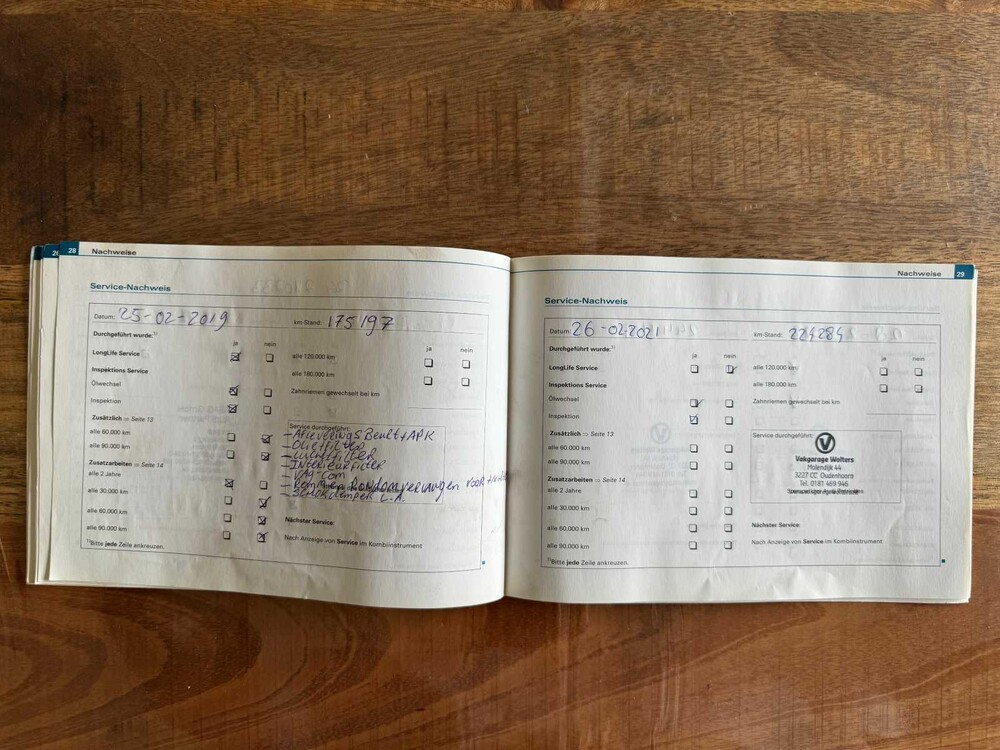 28 Nachweise
Service-Nachweis
Datum: 25-02-2019 km-Stand: 175197
Durchgeführt wurde:¹⁾
ja nein ja nein
LongLife Service alle 120.000 km
Inspektions Service alle 180.000 km
Ölwechsel Zahnriemen gewechselt bei km
Inspektion
Zusätzlich ⇨ Seite 13
Service durchgeführt:
alle 60.000 km
alle 90.000 km
Zusatzarbeiten ⇨ Seite 14
alle 2 Jahre
alle 30.000 km
alle 60.000 km
alle 90.000 km
- Afleverings Beurt + APK
- Oliefilter
- Luchtfilter
- Interieurfilter
- VAG-com
- Rondom
- Schokdemper L.A.
Nächster Service:
Nach Anzeige von Service im Kombiinstrument
¹⁾Bitte jede Zeile ankreuzen.
Nachweise 29
Service-Nachweis
Datum: 26-02-2021 km-Stand: 224284
Durchgeführt wurde:¹⁾
ja nein ja nein
LongLife Service alle 120.000 km
Inspektions Service alle 180.000 km
Ölwechsel Zahnriemen gewechselt bei km
Inspektion
Zusätzlich ⇨ Seite 13
Service durchgeführt:
alle 60.000 km
alle 90.000 km
Zusatzarbeiten ⇨ Seite 14
alle 2 Jahre
alle 30.000 km
alle 60.000 km
alle 90.000 km
Vakgarage Wolters
Molendijk 44
3227 CC Oudenhoorn
Tel. 0181 469 946
Nächster Service:
Nach Anzeige von Service im Kombiinstrument
¹⁾Bitte jede Zeile ankreuzen.